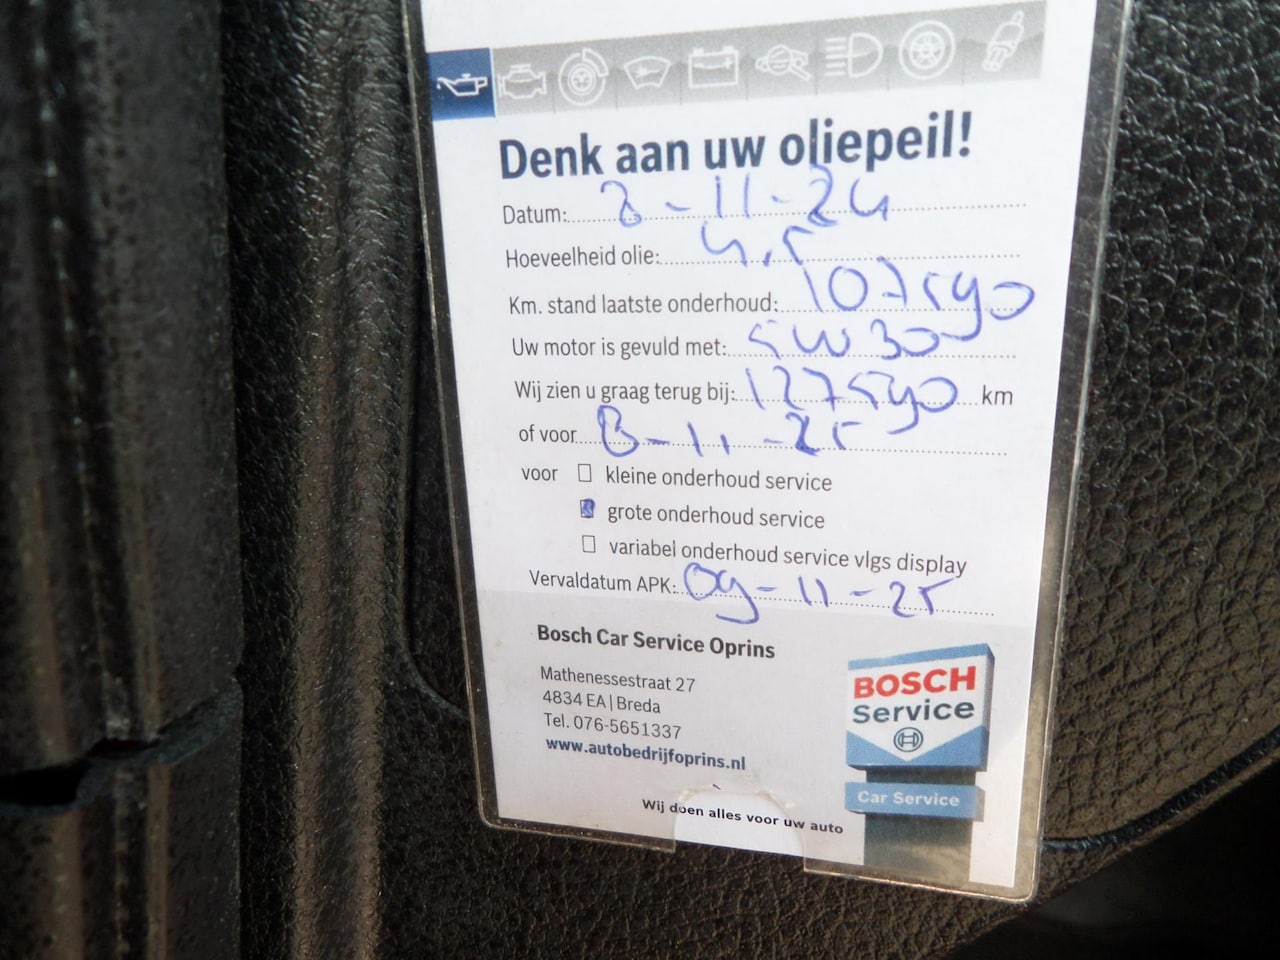 Denk aan uw oliepeil!
Datum: 8-11-24
Hoeveelheid olie: 4,5
Km. stand laatste onderhoud: 107590
Uw motor is gevuld met: 5W30
Wij zien u graag terug bij: 127590 km
of voor 8-11-25
voor kleine onderhoud service
grote onderhoud service
variabel onderhoud service vlgs display
Vervaldatum APK: 09-11-25
Bosch Car Service Oprins
Mathenessestraat 27
4834 EA | Breda
Tel. 076-5651337
www.autobedrijfoprins.nl
BOSCH
Service
Car Service
Wij doen alles voor uw auto